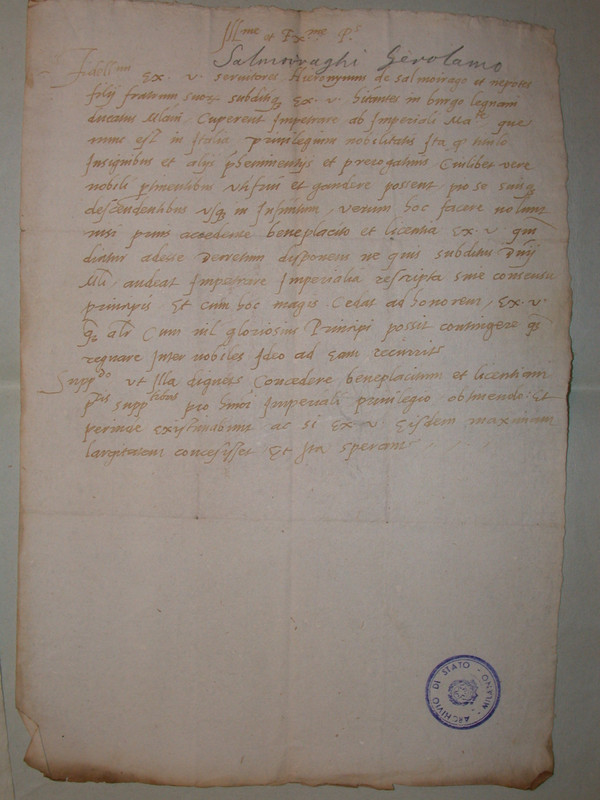 Ill.me et Ex.me P.s
Salmoiraghi Gerolamo
Fidelissimi Ex. v. servitores Hieronymus de salmoirago et nepotes
filij fratrum suor. subditiq. Ex. v. hitantes in burgo legnani
ducatus Mlani, Cuperent Impetrare ab Imperiali Ma.te que
nunc est in Italia privilegium nobilitatis Ita q. titulo
Insignibus et alijs preheminentijs et prerogativis Cuilibet vere
nobili ptinentibus utifrui et gaudere possent pro se suisq.
descendentibus usq. in Infinitum, verum hoc facere nolunt
nisi prius accedente beneplacito et licentia Ex. v. qm
dicitur adesse decretum disponens ne quis subditus
Mli, audeat Impetrare Imperialia rescripta sine consensu
principis Et cum hoc magis Cedat ad honorem, Ex. v.
q. alr Cum nil gloriosius Principi possit contingere q.
regnare Inter nobiles Ideo ad Eam recurrit
Supp.do ut Illa dignetr Concedere beneplacitum et licentiam
ptis supp.tibus pro hmoi Imperiali privilegio obtinendo Et
perinde existimabunt ac si Ex v. Eisdem maximam
largitatem concessisset Et Ita sperant
ARCHIVIO DI STATO - MILANO